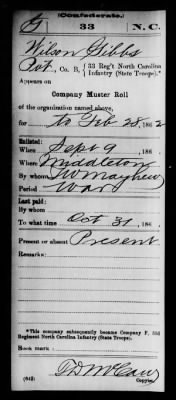 (Confederate.)
G 33 N.C.
Wilson Gibbs
Pvt., Co. B, 33 Reg't North Carolina
Infantry (State Troops).*
Appears on
Company Muster Roll
of the organization named above,
for to Feb 28, 1862
Enlisted:
When Sept 9, 186 .
Where Middleton
By whom T W Mayhew
Period War
Last paid:
By whom
To what time Oct 31, 186 .
Present or absent Present
Remarks:
*This company subsequently became Company F, 33d
Regiment North Carolina Infantry (State Troops).
Book mark:
(642) Copyist.